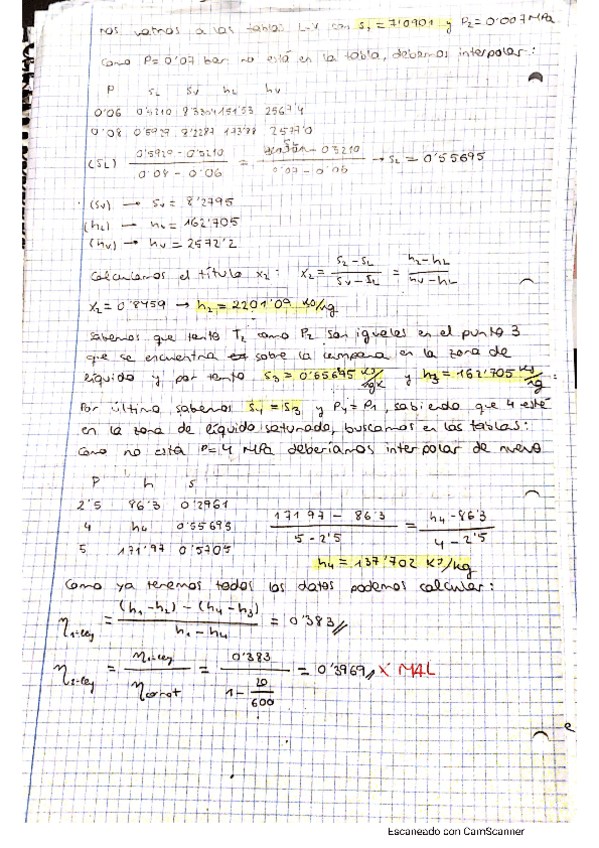 nos vamos a las tablas L-V con S₁ = 7'0901 y P₂ = 0'007 MPa
Como P = 0'07 bar no está en la tabla, debemos interpolar:
P SL SV hL hV
0'06 0'5210 8'3304 151'53 2567'4
0'08 0'5929 8'2287 173'88 2577'0
(SL) (0'5929 - 0'5210)/(0'08 - 0'06) = (- 0'5210)/(0'07 - 0'06) → SL = 0'55695
(SV) → SV = 8'2795
(hL) → hL = 162'705
(hV) → hV = 2572'2
Calculamos el título x₂: x₂ = (S₂ - SL)/(SV - SL) = (h₂ - hL)/(hV - hL)
x₂ = 0'8459 → h₂ = 2201'09 KJ/kg
Sabemos que tanto T₂ como P₂ son iguales en el punto 3
que se encuentra sobre la campana en la zona de
líquido y por tanto S₃ = 0'55695 KJ/kgK y h₃ = 162'705 KJ/kg.
Por último sabemos S₄ = S₃ y P₄ = P₁, sabiendo que 4 esté
en la zona de líquido saturado, buscamos en las tablas:
Como no está P = 4 MPa deberíamos interpolar de nuevo
P h s
2'5 86'3 0'2961
4 h₄ 0'55695
5 171'97 0'5705
(171'97 - 86'3)/(5 - 2'5) = (h₄ - 86'3)/(4 - 2'5)
h₄ = 137'702 KJ/kg
Como ya tenemos todos los datos podemos calcular:
η₁-ley = ((h₁ - h₂) - (h₄ - h₃))/(h₁ - h₄) = 0'383
η₂-ley = η₁-ley/ηcarnot = 0'383/(1 - 20/600) = 0'3969 X MAL
Escaneado con CamScanner